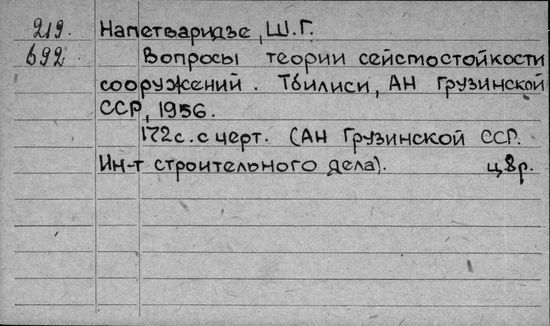 219. Напетваридзе, Ш.Г.
692 Вопросы теории сейсмостойкости
сооружений. Тбилиси, АН Грузинской
ССР, 1956.
172с. с черт. (АН Грузинской ССР.
Ин-т строительного дела). ц.8р.